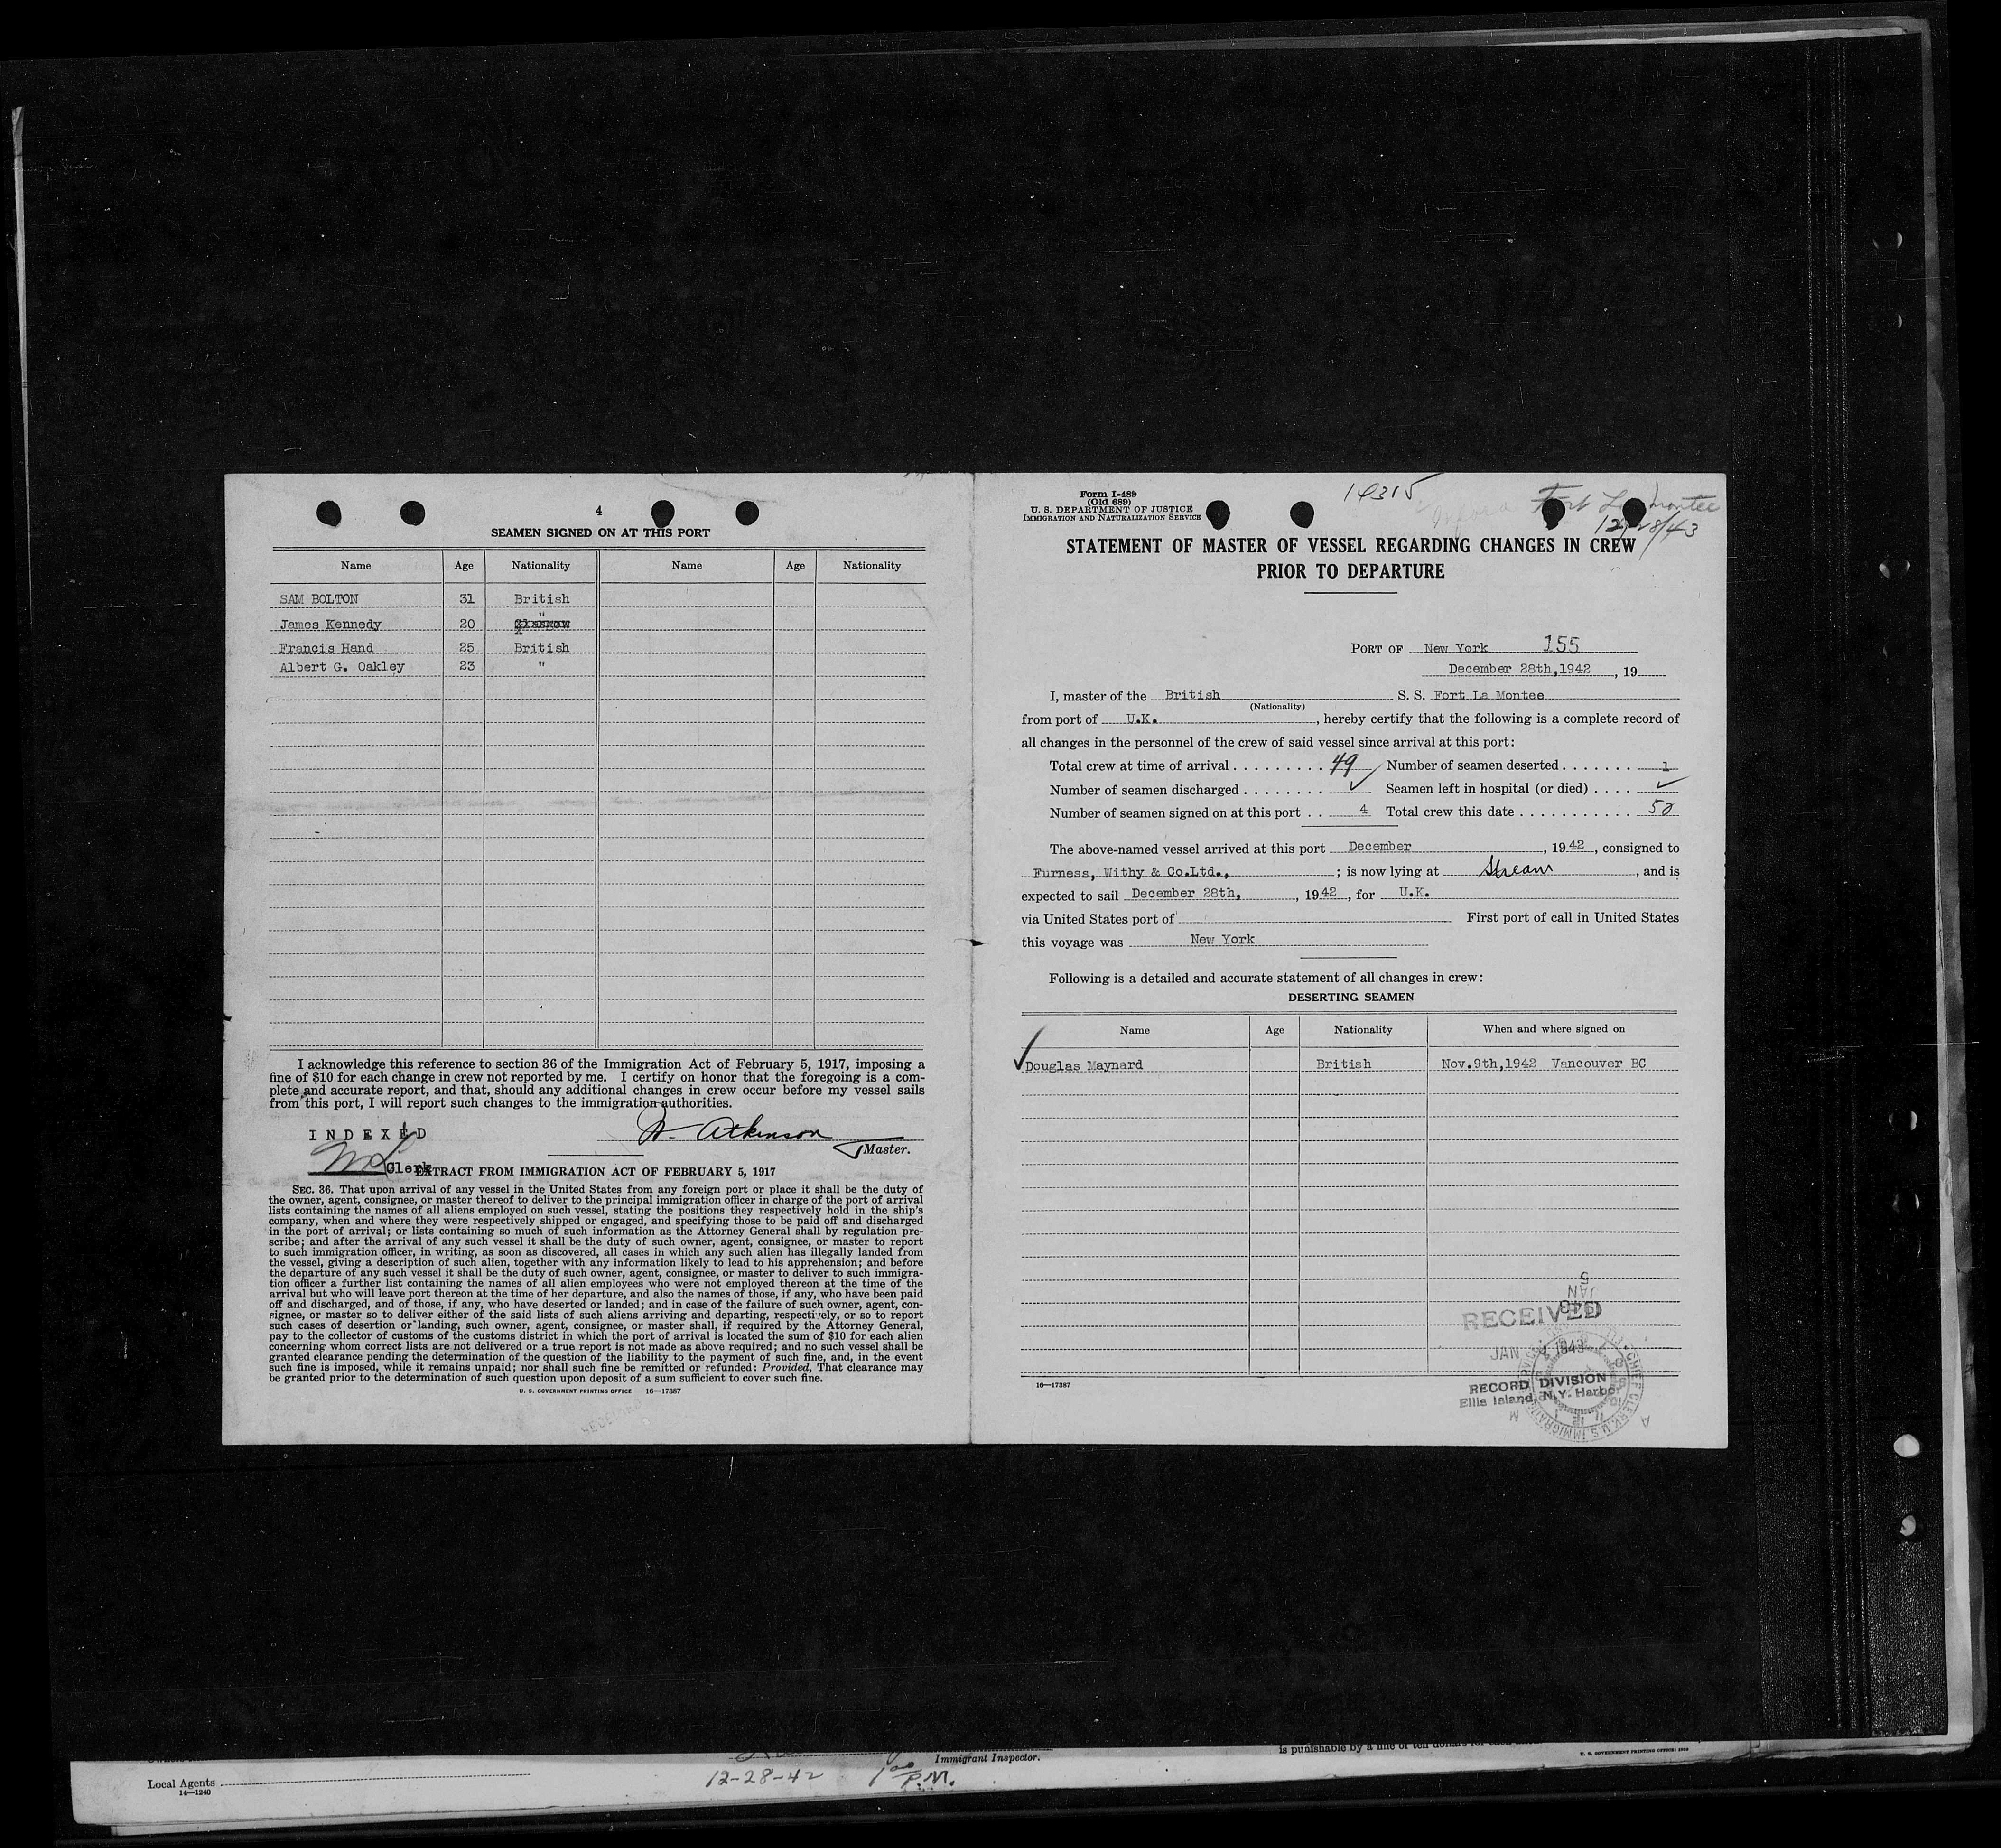 4
SEAMEN SIGNED ON AT THIS PORT
Name Age Nationality Name Age Nationality
SAM BOLTON 31 British
James Kennedy 20 "
Francis Hand 25 British
Albert G. Oakley 23 "
I acknowledge this reference to section 36 of the Immigration Act of February 5, 1917, imposing a
fine of $10 for each change in crew not reported by me. I certify on honor that the foregoing is a com-
plete and accurate report, and that, should any additional changes in crew occur before my vessel sails
from this port, I will report such changes to the immigration authorities.
INDEXED
Atkinson
Master.
Clerk
EXTRACT FROM IMMIGRATION ACT OF FEBRUARY 5, 1917
SEC. 36. That upon arrival of any vessel in the United States from any foreign port or place it shall be the duty of
the owner, agent, consignee, or master thereof to deliver to the principal immigration officer in charge of the port of arrival
lists containing the names of all aliens employed on such vessel, stating the positions they respectively hold in the ship's
company, when and where they were respectively shipped or engaged, and specifying those to be paid off and discharged
in the port of arrival; or lists containing so much of such information as the Attorney General shall by regulation pre-
scribe; and after the arrival of any such vessel it shall be the duty of such owner, agent, consignee, or master to report
to such immigration officer, in writing, as soon as discovered, all cases in which any such alien has illegally landed from
the vessel, giving a description of such alien, together with any information likely to lead to his apprehension; and before
the departure of any such vessel it shall be the duty of such owner, agent, consignee, or master to deliver to such immigra-
tion officer a further list containing the names of all alien employees who were not employed thereon at the time of the
arrival but who will leave port thereon at the time of her departure, and also the names of those, if any, who have been paid
off and discharged, and of those, if any, who have deserted or landed; and in case of the failure of such owner, agent, con-
signee, or master so to deliver either of the said lists of such aliens arriving and departing, respectively, or so to report
such cases of desertion or landing, such owner, agent, consignee, or master shall, if required by the Attorney General,
pay to the collector of customs of the customs district in which the port of arrival is located the sum of $10 for each alien
concerning whom correct lists are not delivered or a true report is not made as above required; and no such vessel shall be
granted clearance pending the determination of the question of the liability to the payment of such fine, and, in the event
such fine is imposed, while it remains unpaid; nor shall such fine be remitted or refunded: Provided, That clearance may
be granted prior to the determination of such question upon deposit of a sum sufficient to cover such fine.
U. S. GOVERNMENT PRINTING OFFICE 16—17387
RECEIVED
Form I-489
(Old 689)
U. S. DEPARTMENT OF JUSTICE
IMMIGRATION AND NATURALIZATION SERVICE
14315
Fort La Montee
12/28/43
STATEMENT OF MASTER OF VESSEL REGARDING CHANGES IN CREW
PRIOR TO DEPARTURE
PORT OF New York 155
December 28th,1942, 19
I, master of the British S. S. Fort La Montee
(Nationality)
from port of U.K., hereby certify that the following is a complete record of
all changes in the personnel of the crew of said vessel since arrival at this port:
Total crew at time of arrival 49 Number of seamen deserted 1
Number of seamen discharged ✓ Seamen left in hospital (or died) ✓
Number of seamen signed on at this port 4 Total crew this date
The above-named vessel arrived at this port December, 1942, consigned to
Furness, Withy & Co.Ltd.,; is now lying at Stream, and is
expected to sail December 28th, , 1942, for U.K.
via United States port of First port of call in United States
this voyage was New York
Following is a detailed and accurate statement of all changes in crew:
DESERTING SEAMEN
Name Age Nationality When and where signed on
✓ Douglas Maynard British Nov.9th,1942 Vancouver BC
JAN 5
1943
RECEIVED
JAN 1943
RECORD DIVISION
Ellis Island, N.Y. Harbor
CHIEF CLERK, U.S. IMMIGRATION
16—17387
Immigrant Inspector.
is punishable by a fine of ten dollars for each
U. S. GOVERNMENT PRINTING OFFICE:
Local Agents
14—1240
12-28-42 1 00 P.M.